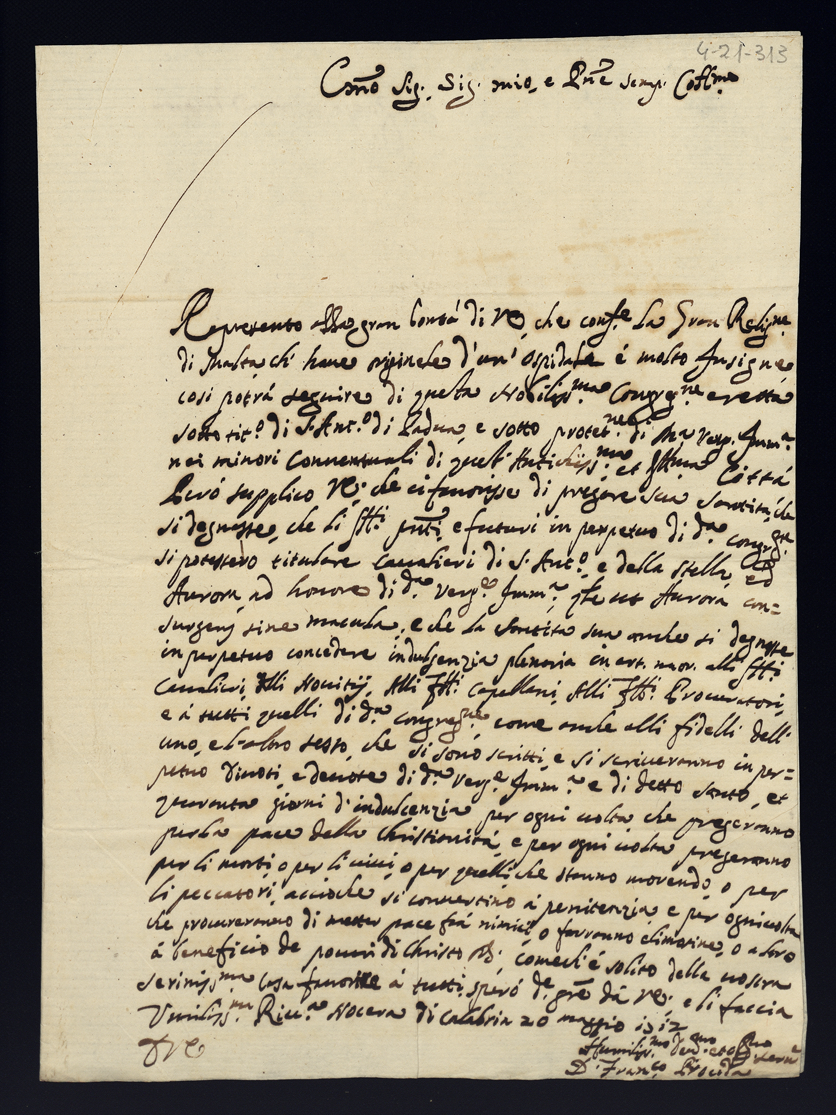 4-21-313
Sig. Sig. mio, e semp.
Represento alla gran bontá di VE, che conf.e La Gran Relig.ne
di Malta, ch' have originele d'un' ospidale é molto Insigne,
cosi potrá seguire di questa Nobiliss.ma Congreg.ne eretta
sotto tit.o di S. Ant.o di Padua, e sotto protet.ne di Ma Verg. Imm.a
nei minori Conventuali di quest' Antichiss.ma et Città
Peró supplico VE; che ci favorisse di pregare sua Santitá, che
si degnasse, che li ftti pnti, e futuri in perpetuo di d.a congreg.ne
si potessero titulare Cavalieri di S. Ant.o e della stella, ed
Aurora, ad honore di d.a Verg.e Imm.a, ut Aurora con=
surgens sine macula, e che La Santita sua anche si degnasse
in perpetuo concedere indulgenzia plenaria in art. mor. alli ftti
Cavalieri, Alli Novitij, Alli ftti Capellani, Alli ftti Procuratori,
e á tutti quelli di d.a congreg.ne come anche alli fidelli dell'
uno, e l'altro sesso, che si sono scritti, e si scriveranno in per=
petuo divoti, e devote di d.a Verg.e Imm.a e di detto santo, et
quaranta giorni d'indulcenzia per ogni volta che pregeranno
per la pace della Christianitá, e per ogni volta pregeranno
per li morti, o per li vivi, o per quelli che stanno morendo, o per
li peccatori, accioche si convertino á penitenzia, e per ogni volta
che procureranno di metter pace frá nimici, o farranno elimosine, o altro
á beneficio de poveri di Christo comech'é solito della vostra
Serenis.ma Casa favorire á tutti, speró de gre dá VE; e li faccia
Umiliss.ma Riv.a Nocera di Calabria 20 maggio
VE
Humiliss.mo
D. Fran.co